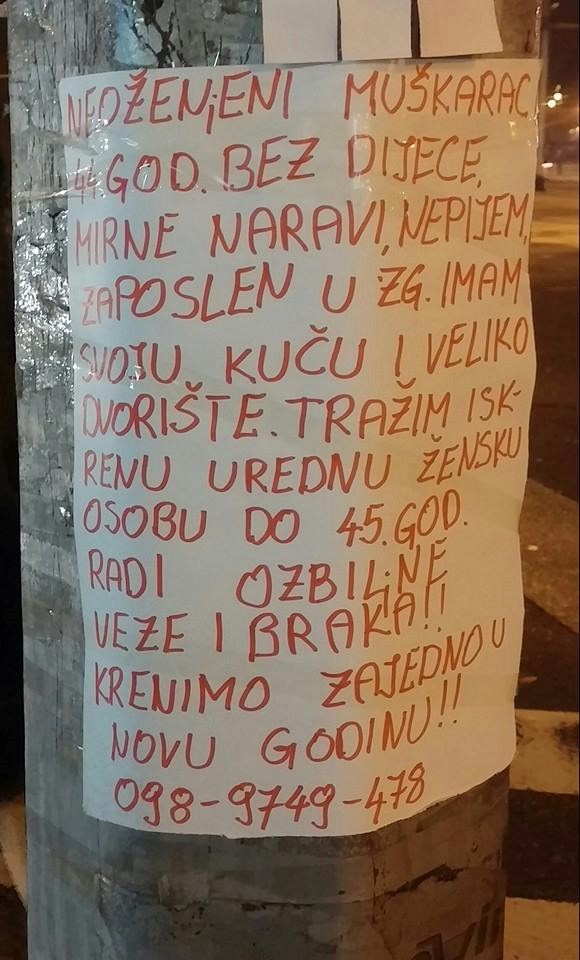 NEOŽENjENI MUŠKARAC
44 GOD. BEZ DIJECE,
MIRNE NARAVI, NEPIJEM,
ZAPOSLEN U ZG. IMAM
SVOJU KUČU I VELIKO
DVORIŠTE. TRAŽIM ISK-
RENU UREDNU ŽENSKU
OSOBU DO 45. GOD.
RADI OZBILjNE
VEZE I BRAKA!!
KRENIMO ZAJEDNO U
NOVU GODINU!!
098-9749-478